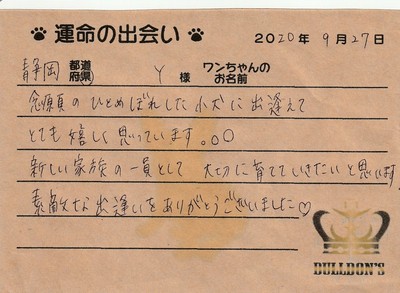 運命の出会い 2020年 9月27日
静岡 都道府県 Y 様 ワンちゃんのお名前
念願の ひとめぼれした 小犬に 出逢えて
とても 嬉しく 思っています。○○
新しい 家族の 一員として 大切に 育てていきたいと 思います
素敵な 出逢いを ありがとうございました♡
BULLDON'S